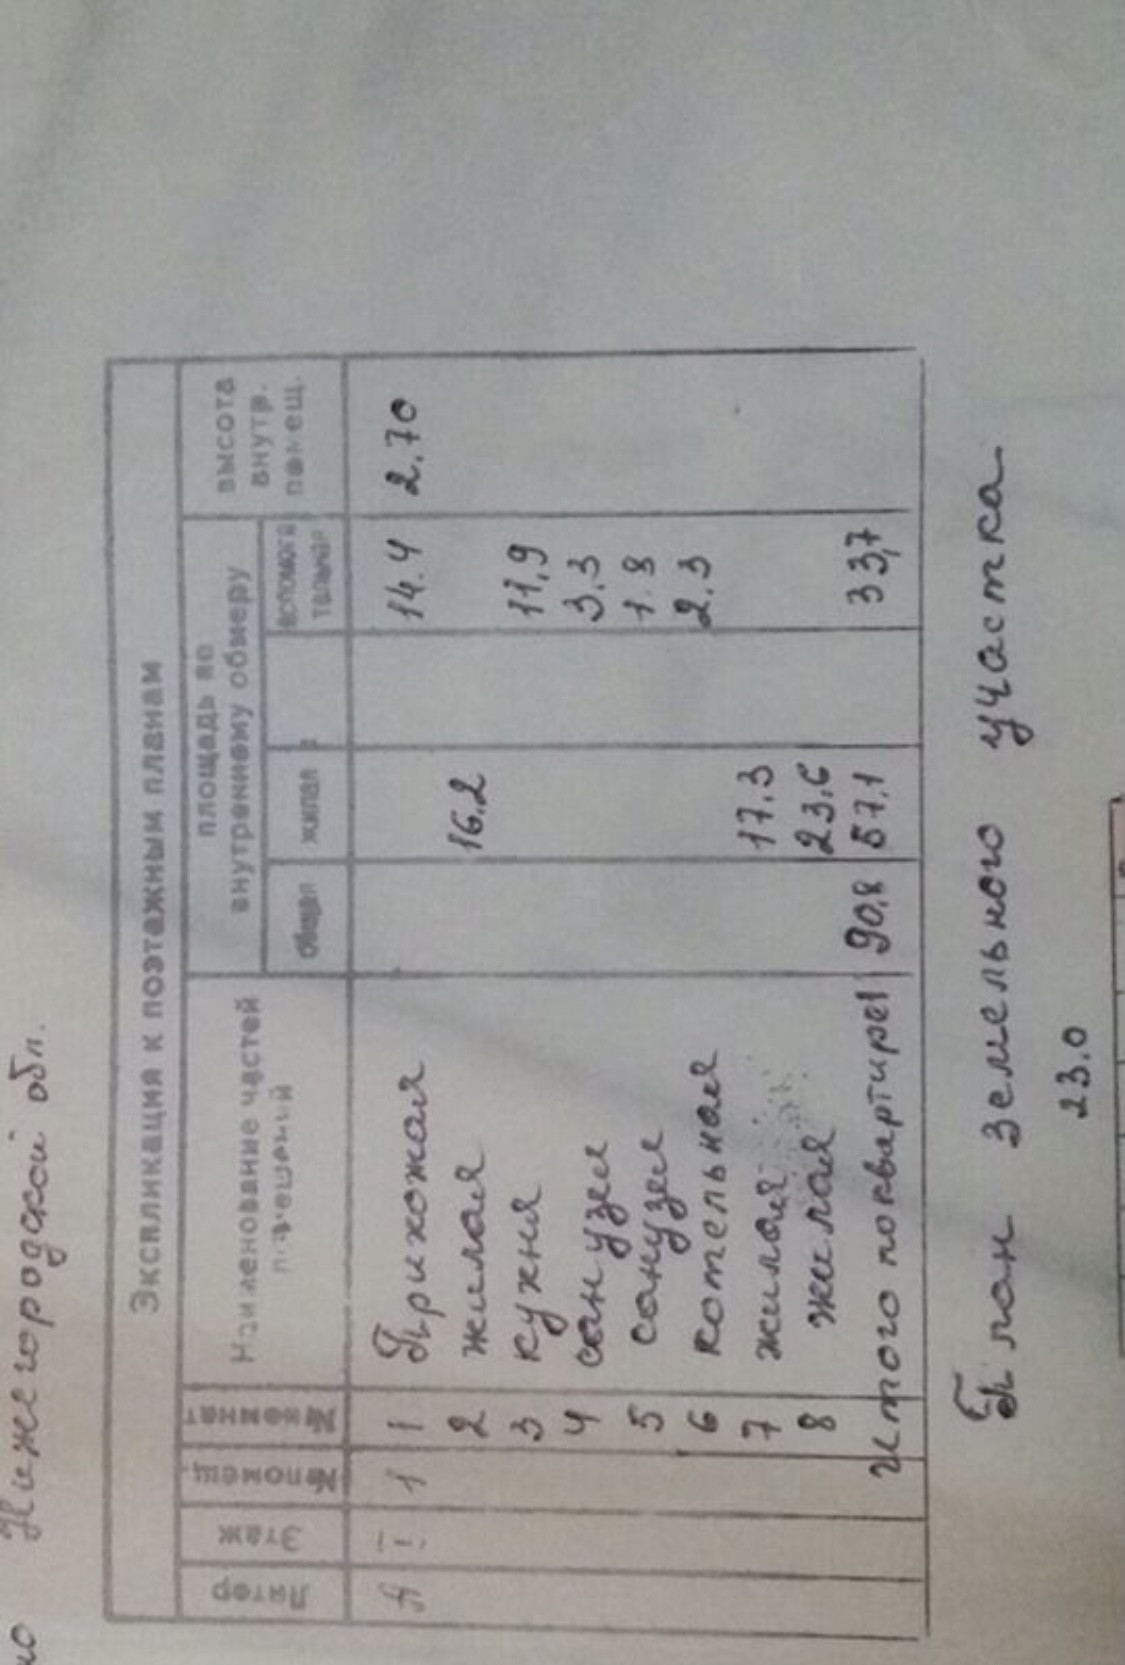 но Нижегородской обл.
Экспликация к поэтажным планам
Литер Этаж № помещ. № комнат Наименование частей помещений площадь по внутреннему обмеру высота внутр. помещ.
общая жилая вспомога тельная
А I 1 1 Прихожая 14.4 2.70
2 жилая 16.2
3 кухня 11.9
4 санузел 3.3
5 санузел 1.8
6 котельная 2.3
7 жилая 17.3
8 жилая 23.6
Итого по квартире1 90,8 57.1 33,7
План земельного участка
23.0